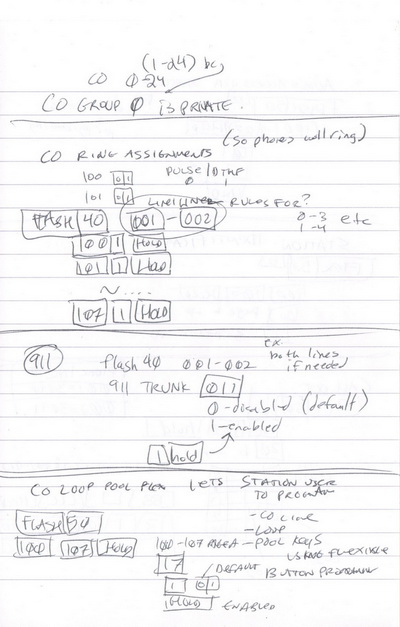 (1-24) bc
CO 0-24
CO GROUP 0 is PRIVATE.
(So phones will ring)
CO RING ASSIGNMENTS
100 0/1 PULSE/DTMF
0 1
101 0/1 RULES FOR?
FLASH 40 001 - 002 0-3 etc
1-4
100 1 HOLD
101 1 HOLD
~ ....
107 1 HOLD
911 flash 40 001-002 ex. both lines if needed
911 TRUNK 011
0-disabled (default)
1-enabled
1 hold
CO LOOP POOL FLEX LETS STATION USER
TO PROGRAM
- CO Line
FLASH 50 - LOOP
100 107 HOLD 100-107 - POOL KEYS
17 USING FLEXIBLE
DEFAULT BUTTON PROGRAM
1 0/1
HOLD ENABLED